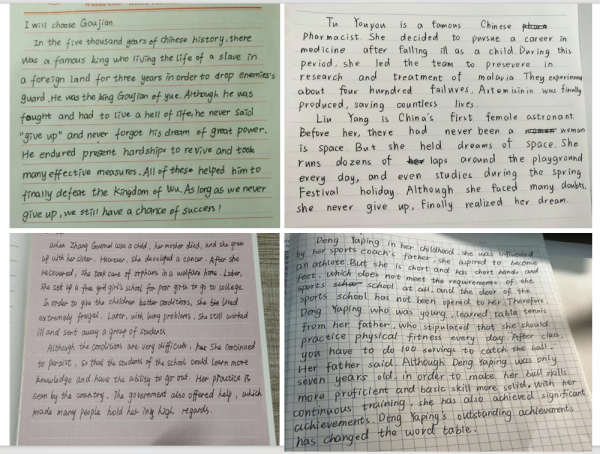 I will choose Goujian.
In the five thousand years of chinese history, there
was a famous king who living the life of a slave in
a foreign land for three years in order to drop enemies's
guard. He was the king Goujian of yue. Although he was
fought and had to live a hell of life, he never said
"give up" and never forgot his dream of great power.
He endured present hardships to revive and took
many effective measures. All of these helped him to
finally defeat the kingdom of Wu. As long as we never
give up, we still have a chance of success!
Tu Youyou is a famous Chinese
Pharmacist. She decided to pursue a career in
medicine after falling ill as a child. During this
period. she led the team to presevere in
research and treatment of malaria They experienced
about four hurndred failures. Artemisinin was finally
produced, saving countless lives.
Liu Yang is China's first female astronant.
Before her, there had never been a woman
is space But she held dreams of space. She
runs dozens of laps around the playground
every day, and even studies during the spring
Festival holiday. Although she faced many doubts,
she never give up, finally realized her dream.
When Zhang Guimei was a child, her mother died, and she grew
up with her sister. However, she developed a cancer. After she
recovered, she took care of orphans in a welfare home. Later,
she set up a free girl's school for poor girls to go to college.
In order to give the children better conditions, she lived
extremely frugal. Later, with lung problems, she still worked
ill and sent away a group of students.
Although the conditions are very difficult, she continued
to persist, so that the students of the school could learn more
knowledge and have the ability to go out. Her practice is
seen by the country. The government also offered help, which
made many people hold her in high regards.
Deng Yaping in her childhood, she was influenced
by her sports coach's father, she aspired to become
an athlete. But she is short and has short hands and
feet, which does not meet the requirements of the
sports school at all, and the door of the
sports school has not been opened to her. Therefore,
Deng Yaping who was young, learned table tennis
from her father, who stipulated that she should
practice physical fitness every day. After class,
you have to do 100 servings to catch the ball.
Her father said. Although Deng Yaping was only
seven years old, in order to make her ball skills
more proficient and basic skill more solid, with her
continuous training, she has also achieved significant
achievements. Deng Yaping's outstanding achievements
has changed the word table.